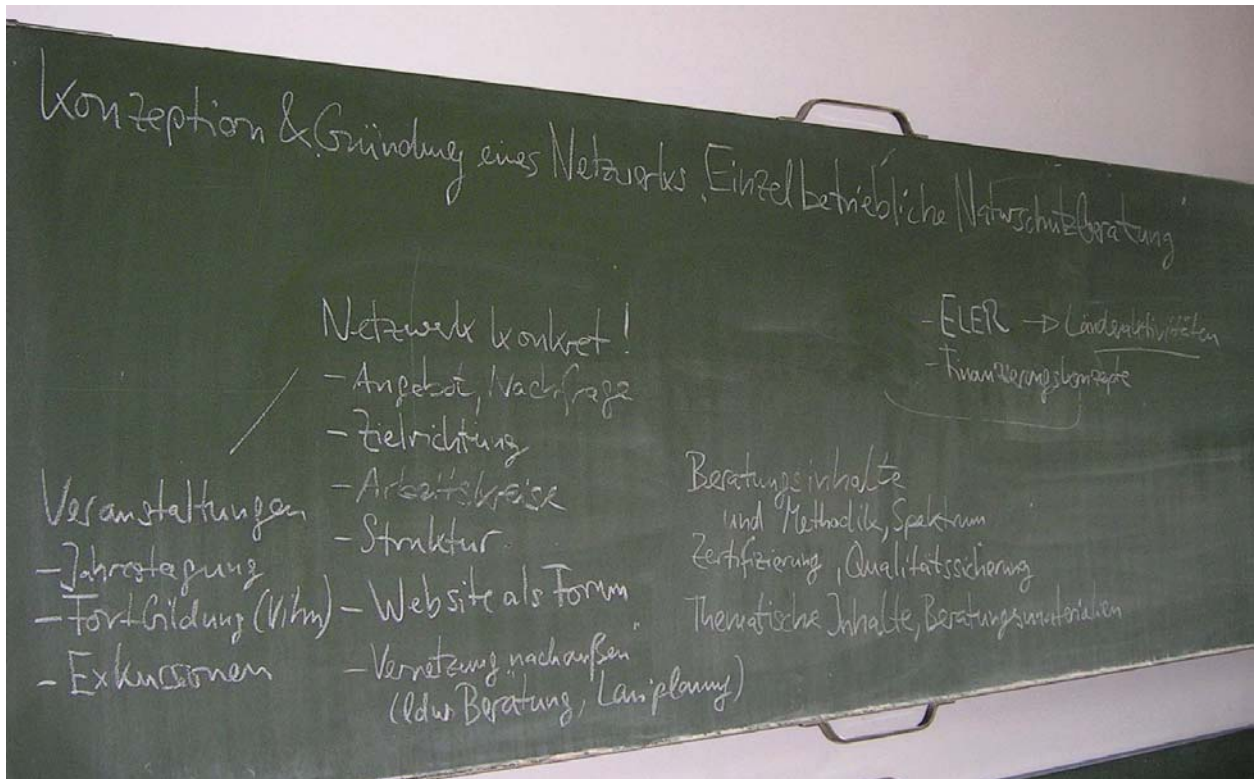 Konzeption & Gründung eines Netzwerks Einzelbetriebliche Naturschutzberatung
Netzwerk konkret!
- Angebot, Nachfrage
- Zielrichtung
- Arbeitskreise
- Struktur
- Website als Forum
- Vernetzung "nach außen"
(ldw Beratung, )
Veranstaltungen
- Jahrestagung
- Fortbildung (Vilm)
- Exkursionen
- ELER → Länderaktivitäten
- Finanzierungskonzepte
Beratungsinhalte
und Methodik, Spektrum
Zertifizierung, Qualitätssicherung
Thematische Inhalte, Beratungsmaterialien